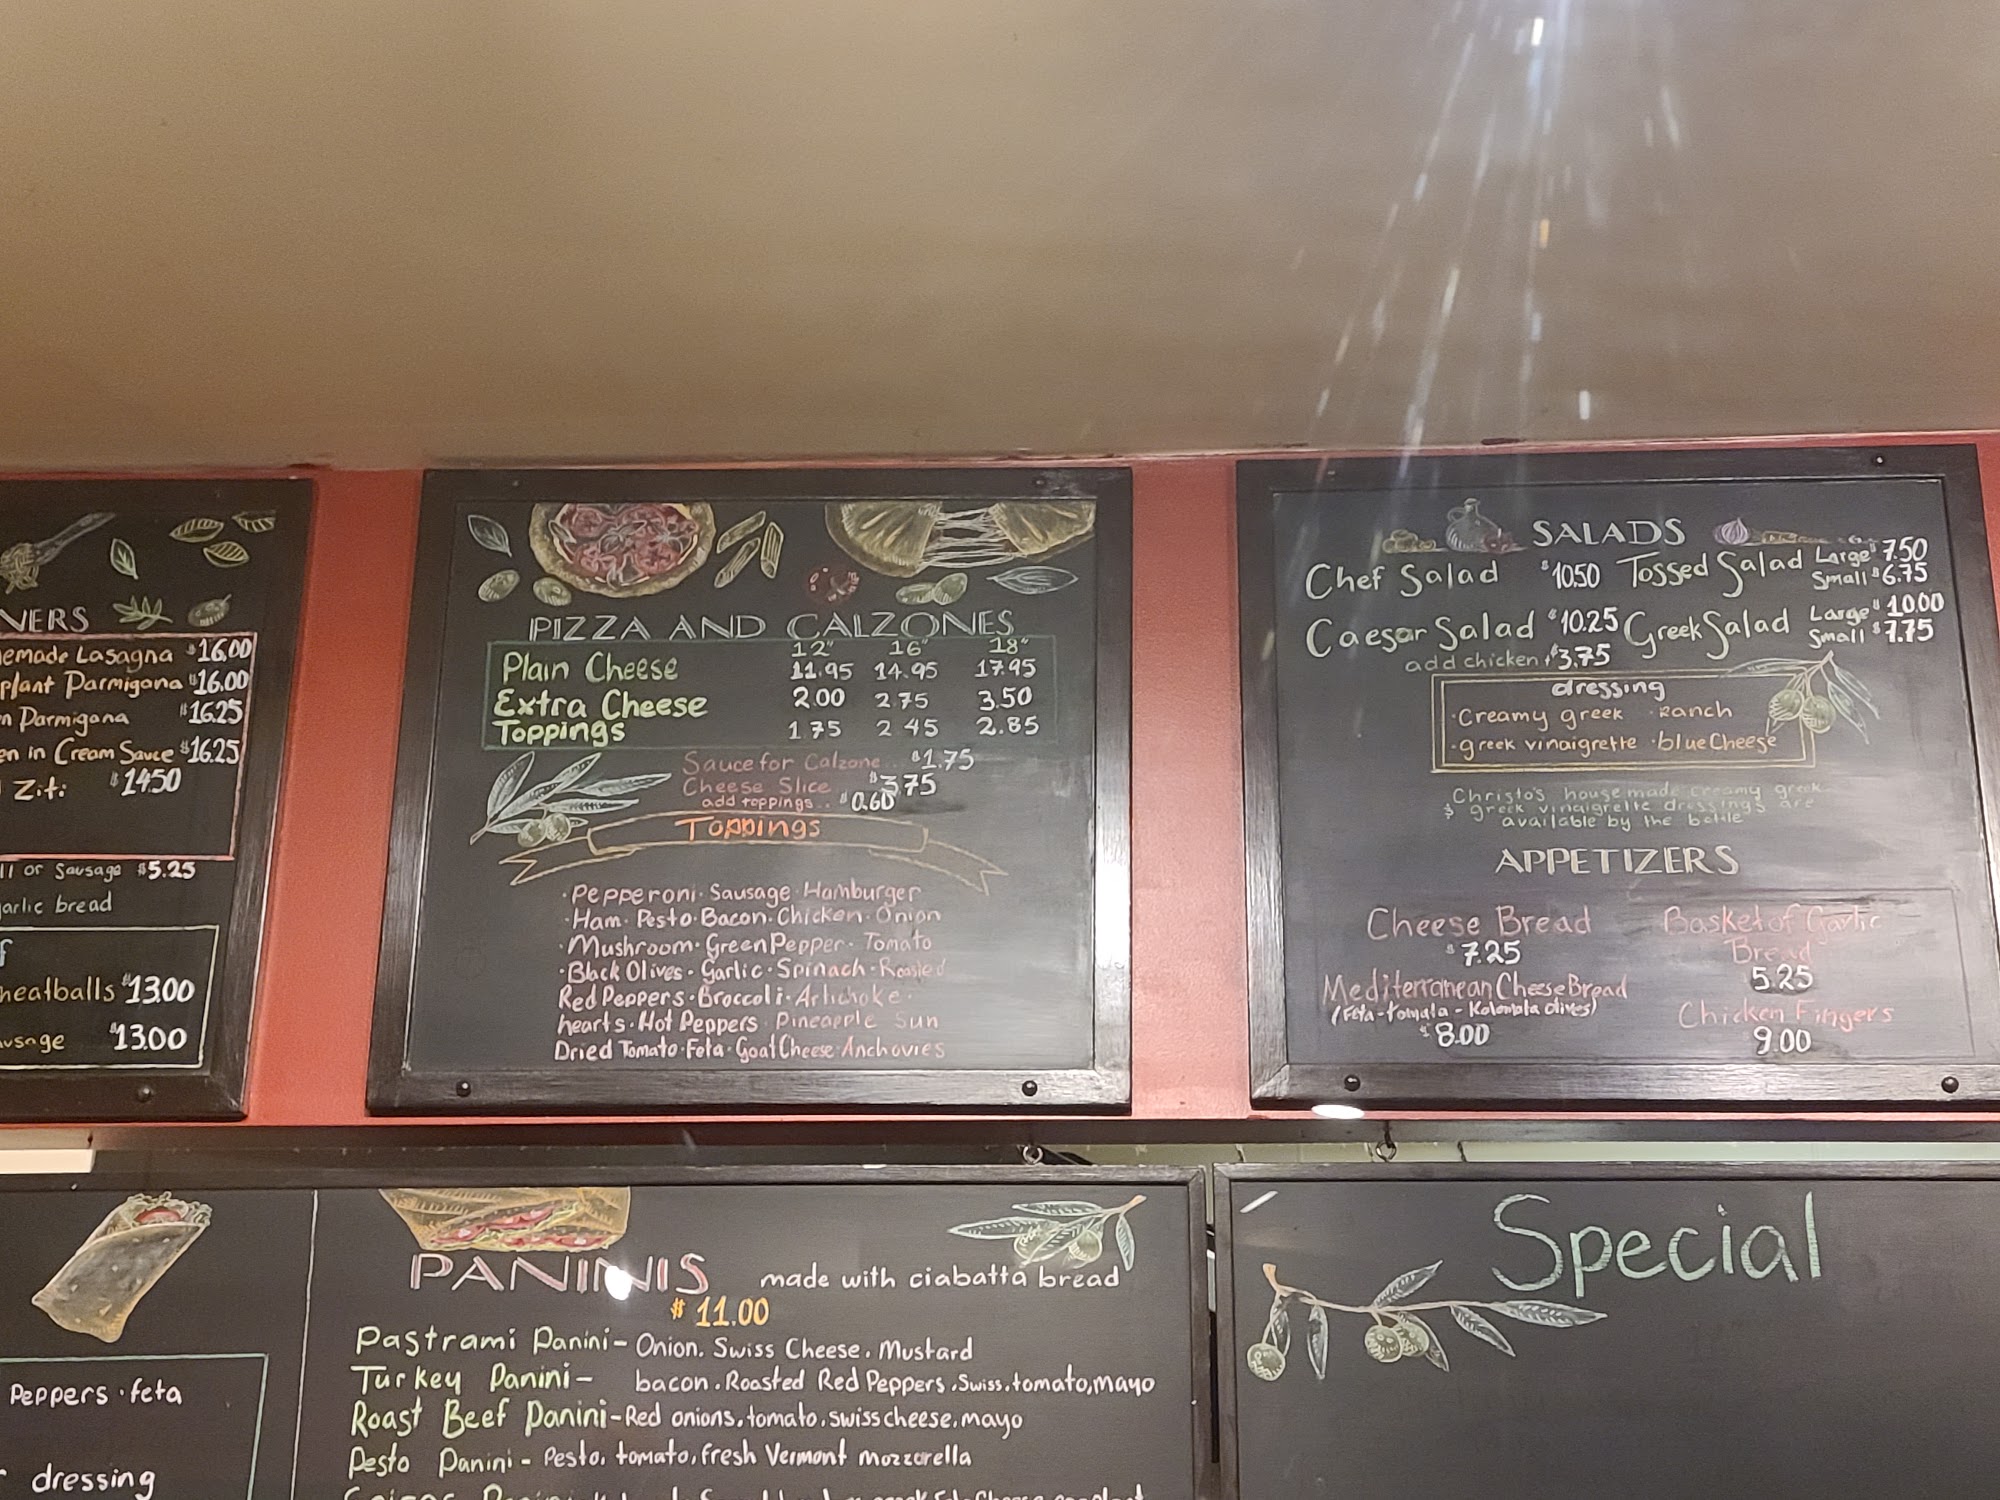 NERS
emade Lasagna $16.00
plant Parmigana $16.00
n Parmigana $16.25
en in Cream Sauce $16.25
Ziti $14.50
ll or Sausage $5.25
arlic bread
f
neatballs $13.00
usage $13.00
PIZZA AND CALZONES
12" 16" 18"
Plain Cheese 11.95 14.95 17.95
Extra Cheese 2.00 2.75 3.50
Toppings 1.75 2.45 2.85
Sauce for Calzone... $1.75
Cheese Slice $3.75
add toppings... $0.60
Toppings
·Pepperoni·Sausage·Hamburger
·Ham·Pesto·Bacon·Chicken·Onion
·Mushroom·Green Pepper·Tomato
·Black Olives·Garlic·Spinach·Roasted
Red Peppers·Broccoli·Artichoke·
hearts·Hot Peppers·Pineapple Sun
Dried Tomato·Feta·Goat Cheese·Anchovies
SALADS
Chef Salad $10.50 Tossed Salad Large $7.50
Small $6.75
Caesar Salad $10.25 Greek Salad Large $10.00
Small $7.75
add chicken + $3.75
dressing
·Creamy greek ·Ranch
·greek vinaigrette ·blue Cheese
Christo's housemade creamy greek
$ greek vinaigrette dressings are
available by the bottle
APPETIZERS
Cheese Bread
$7.25
Basket of Garlic
Bread
5.25
Mediterranean Cheese Bread
(Feta-tomata-Kalamata olives)
$8.00
Chicken Fingers
9.00
PANINIS made with ciabatta bread
$11.00
Pastrami Panini- Onion. Swiss Cheese. Mustard
Turkey Panini- bacon.Roasted Red Peppers.Swiss.tomato,mayo
Roast Beef Panini-Red onions.tomato.swiss cheese.mayo
Pesto Panini- Pesto, tomato,fresh Vermont mozzarella
Peppers·feta
dressing
Special